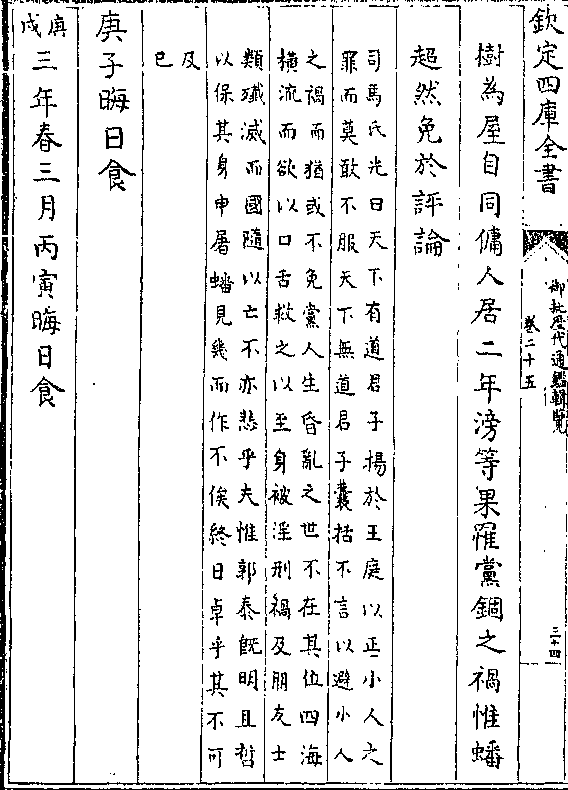 欽定四庫全書
御批歷代通鑑輯覽
卷二十五
三十四
樹為屋自同傭人居二年滂等果罹黨錮之禍惟蟠
超然免於評論
司馬氏光曰天下有道君子揚於王庭以正小人之
罪而莫敢不服天下無道君子囊括不言以避小人
之禍而猶或不免黨人生昏亂之世不在其位四海
橫流而欲以口舌救之以至身被淫刑禍及朋友士
類殲滅而國隨以亡不亦悲乎夫惟郭泰既明且哲
以保其身申屠蟠見幾而作不俟終日卓乎其不可
及
已
庚子晦日食
庚戌三年春三月丙寅晦日食